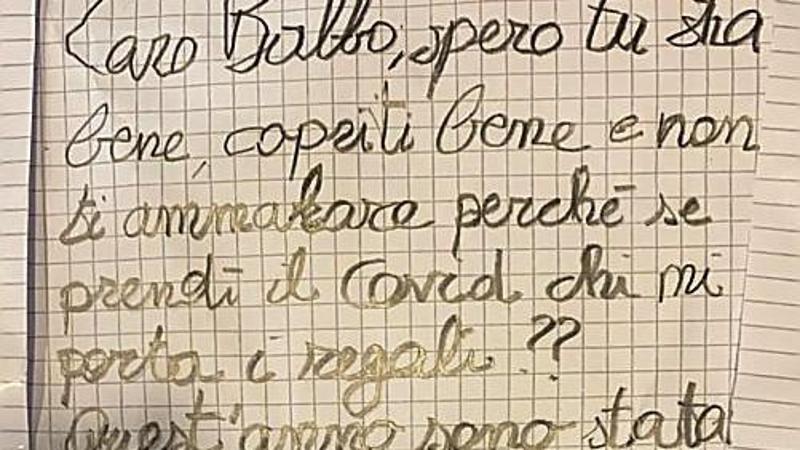 Caro Babbo, spero tu stia
bene, copriti bene e non
ti ammalare perchē se
prendi il Covid chi mi
porta i regali ??
Quest'anno sono stata